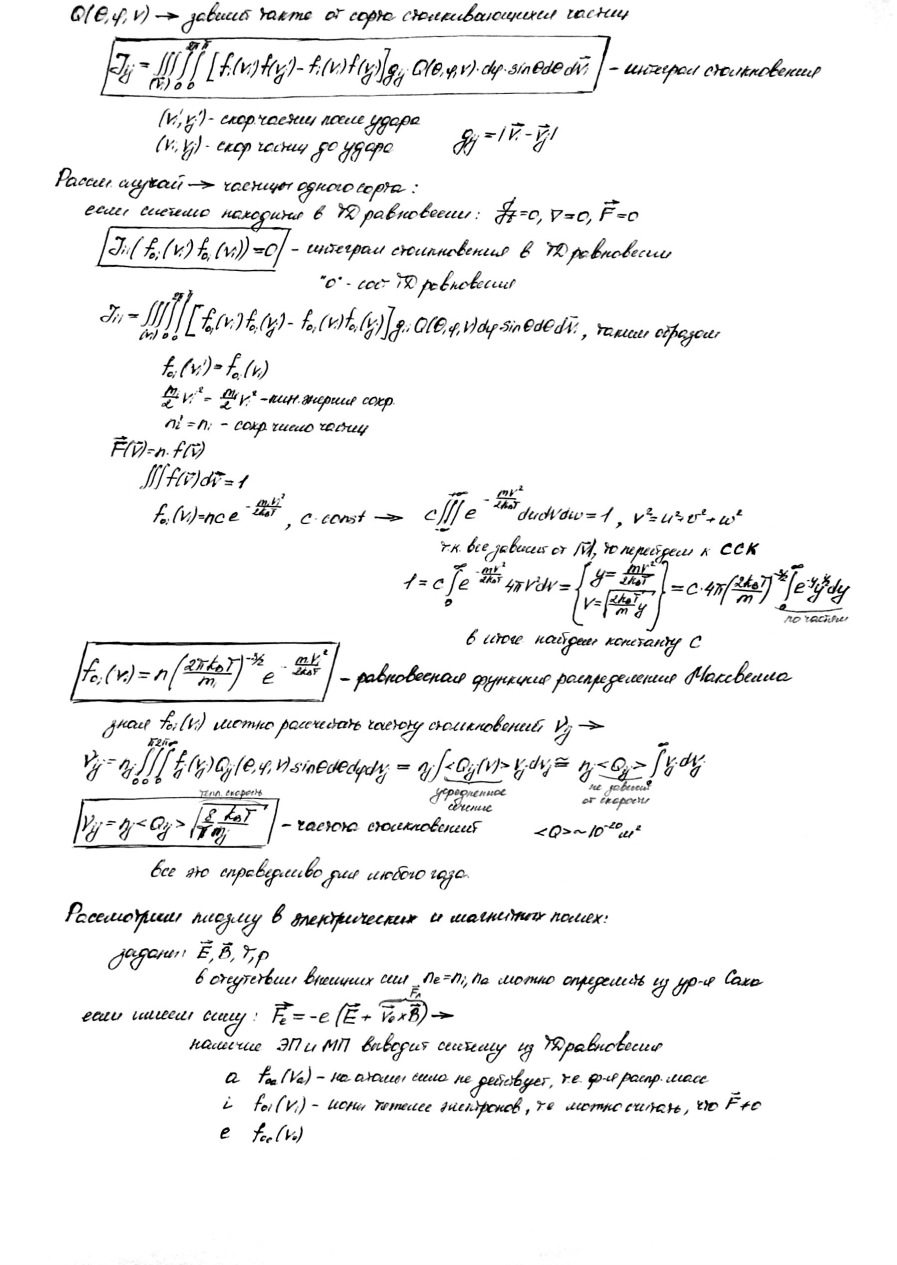 Q(θ,φ,v) → зависит также от сорта сталкивающихся частиц
J_ij = ∭_(v_i) ∫_0^2π ∫_0^π [f_i(v_i')f(v_j') - f_i(v_i)f(v_j)] g_ij Q(θ,φ,v)·dφ·sinθdθdv⃗_i - интеграл столкновения
(v_i',v_j') - скор. частиц после удара
(v_i,v_j) - скор частиц до удара g_ij = |v⃗_i - v⃗_j|
Рассм. случай → частицы одного сорта:
если система находится в ТД равновесии: d/dt=0, ∇=0, F⃗=0
J_ii(f_0i(v_i) f_0i(v_i))=0 - интеграл столкновения в ТД равновесии
"0" - сост ТД равновесия
J_ii = ∭_(v_i) ∫_0^2π ∫_0^π [f_0i(v_i')f_0i(v_j') - f_0i(v_i)f_0i(v_j)] g_ii Q(θ,φ,v)dφ·sinθdθdv⃗_i, таким образом
f_0i(v_i') = f_0i(v_i)
m_i/2 v_i'^2 = m_i/2 v_i^2 - кин. энергия сохр.
n_i' = n_i - сохр. число частиц
F⃗(v⃗)=n·f(v⃗)
∭f(v⃗)dv⃗=1
f_0i(v_i)=nce^(-m_iv_i^2/2k_БT), c-const → c∭_-∞^+∞ e^(-mv^2/2k_БT) dudvdw=1, v^2=u^2+v^2+w^2
т.к. все зависит от |v⃗|, то перейдем к ССК
1 = c∫_0^∞ e^(-mv^2/2k_БT) 4πv^2dv = {y=mv^2/2k_БT; v=√(2k_БT/m y)} = c·4π(2k_БT/m)^(-3/2) ∫_0^∞ e^(-y) y^(1/2) dy
по частям
в итоге найдем константу C
f_0i(v_i) = n(2πk_БT/m_i)^(-3/2) e^(-m_iv_i^2/2k_БT) - равновесная функция распределения Максвелла
зная f_0i(v_i) можно рассчитать частоту столкновений ν_ij →
ν_ij = n_j ∫_0^π ∫_0^2π ∫_0^∞ f_j(v_j)Q_ij(θ,φ,v)sinθdθdφdv_j = n_j∫<Q_ij(v)>v_jdv_j ≅ n_j<Q_ij>∫_0^∞ v_jdv_j
усредненное сечение не зависит от скорости
тепл. скорость
ν_ij = n_j<Q_ij>√(8/π k_БT/m_j) - частота столкновений <Q>~10^-20 м^2
все это справедливо для любого газа.
Рассмотрим плазму в электрических и магнитных полях:
заданы E⃗, B⃗, T, p
в отсутствии внешних сил n_e=n_i, n_a можно определить из ур-я Саха
если имеем силу: F⃗_e = -e(E⃗ + v⃗_e×B⃗) → F⃗_л
наличие ЭП и МП выводит систему из ТД равновесия
a f_0a(v_a) - на атомы сила не действует, т.е. ф-я распр. масс
i f_0i(v_i) - ионы тяжелее электронов, т.е можно считать, что F⃗→0
e f_0e(v_e)